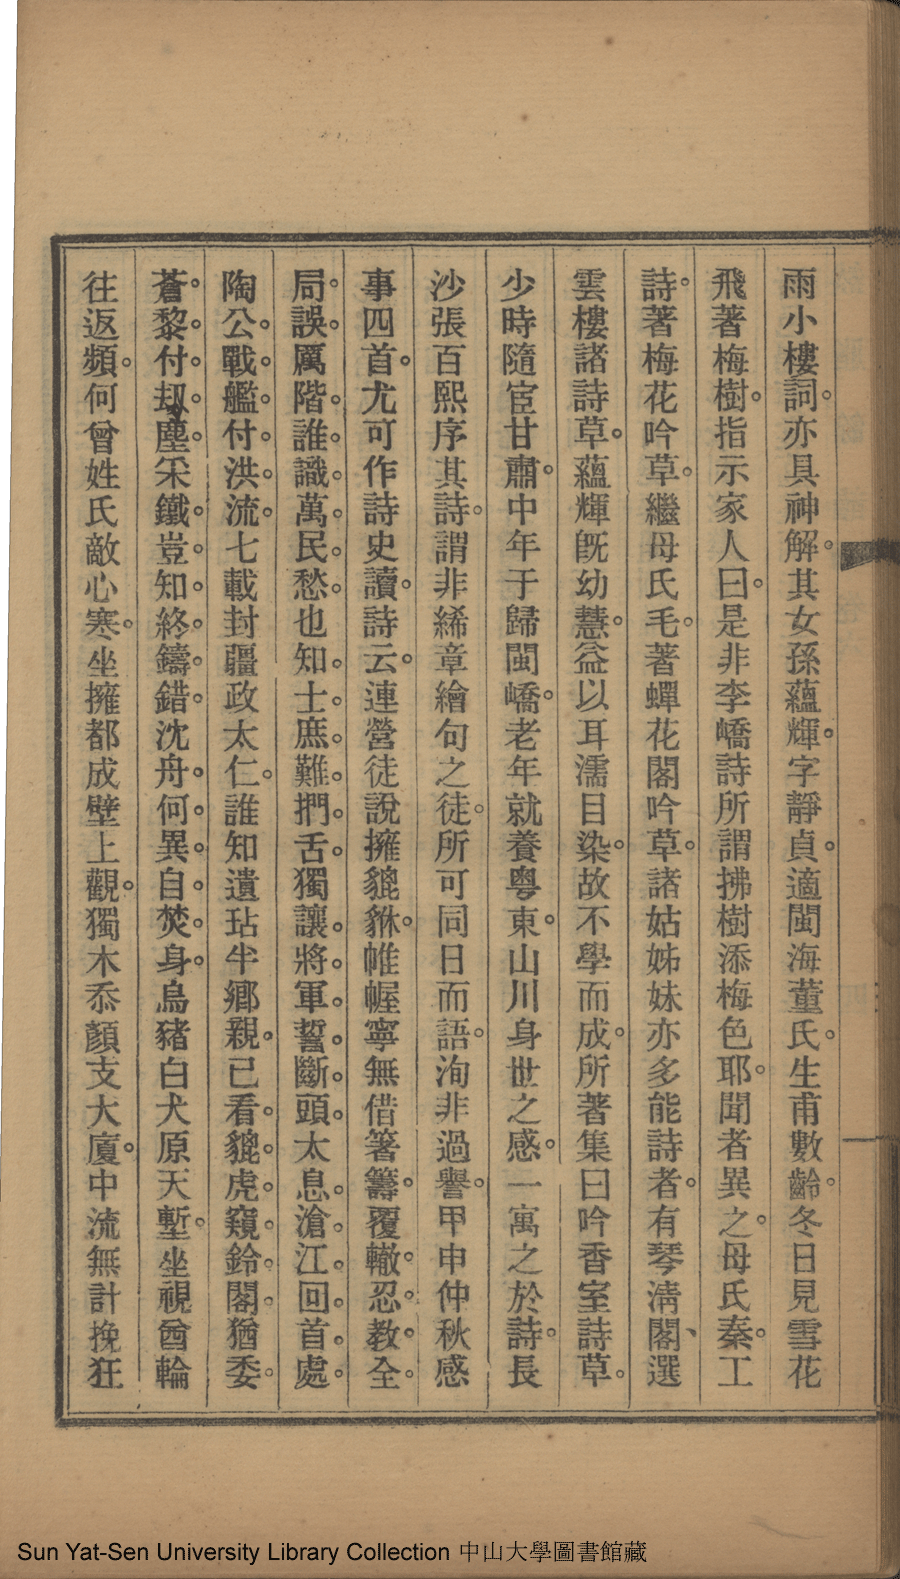 雨小樓詞亦具神解。其女孫蘊輝。字靜貞。適閩海董氏。生甫數齡。冬日見雪花
飛著梅樹。指示家人曰。是非李嶠詩所謂拂樹添梅色耶。聞者異之。母氏秦。工
詩。著梅花吟草。繼母氏毛。著蟬花閣吟草。諸姑姊妹亦多能詩者。有琴清閣、選
雲樓諸詩草。蘊輝旣幼慧。益以耳濡目染。故不學而成。所著集曰吟香室詩草。
少時隨宦甘肅。中年于歸閩嶠。老年就養粵東。山川身世之感。一寓之於詩。長
沙張百熙序其詩。謂非絺章繪句之徒。所可同日而語。洵非過譽。甲申仲秋感
事四首。尤可作詩史讀。詩云。連營徒說擁貔貅。帷幄寧無借箸籌。覆轍。忍。教。全。
局。誤。厲階。誰。識。萬。民。愁。也知。士。庶。難。捫。舌。獨讓。將。軍。誓。斷。頭。太息。滄。江。回。首。處。
陶公。戰。艦。付。洪。流。七載封疆政太仁。誰知遺玷半鄉親。已看。貔。虎。窺。鈴。閣。猶委。
蒼。黎。付。刼。塵。采鐵。豈。知。終。鑄。錯。沈舟。何。異。自。焚。身。烏豬白犬原天塹。坐視酋輪
往返頻。何曾姓氏敵心寒。坐擁都成壁上觀。獨木忝顏支大廈。中流無計挽狂
Sun Yat-Sen University Library Collection 中山大學圖書館藏